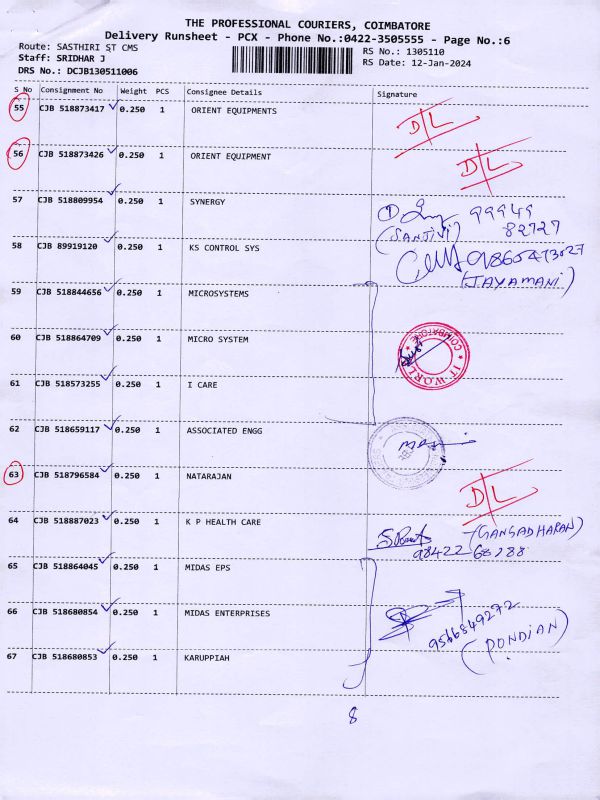 THE PROFESSIONAL COURIERS, COIMBATORE
Delivery Runsheet - PCX - Phone No.:0422-3505555 - Page No.:6
Route: SASTHIRI ST CMS
RS No.: 1305110
Staff: SRIDHAR J
RS Date: 12-Jan-2024
DRS No.: DCJB130511006
S No Consignment No Weight PCS Consignee Details Signature
55 CJB 518873417 0.250 1 ORIENT EQUIPMENTS D/L
56 CJB 518873426 0.250 1 ORIENT EQUIPMENT D/L
57 CJB 518809954 0.250 1 SYNERGY 99949
(SANJIVI) 82727
58 CJB 89919120 0.250 1 KS CONTROL SYS
(JAYAMANI)
59 CJB 518844656 0.250 1 MICROSYSTEMS
60 CJB 518864709 0.250 1 MICRO SYSTEM
COIMBATORE
IT WORLD
61 CJB 518573255 0.250 1 I CARE
62 CJB 518659117 0.250 1 ASSOCIATED ENGG
63 CJB 518796584 0.250 1 NATARAJAN D/L
64 CJB 518887023 0.250 1 K P HEALTH CARE (GANGADHARAN)
98422 68288
65 CJB 518864045 0.250 1 MIDAS EPS
66 CJB 518680854 0.250 1 MIDAS ENTERPRISES 9566849272
(PONDIAN)
67 CJB 518680853 0.250 1 KARUPPIAH
8